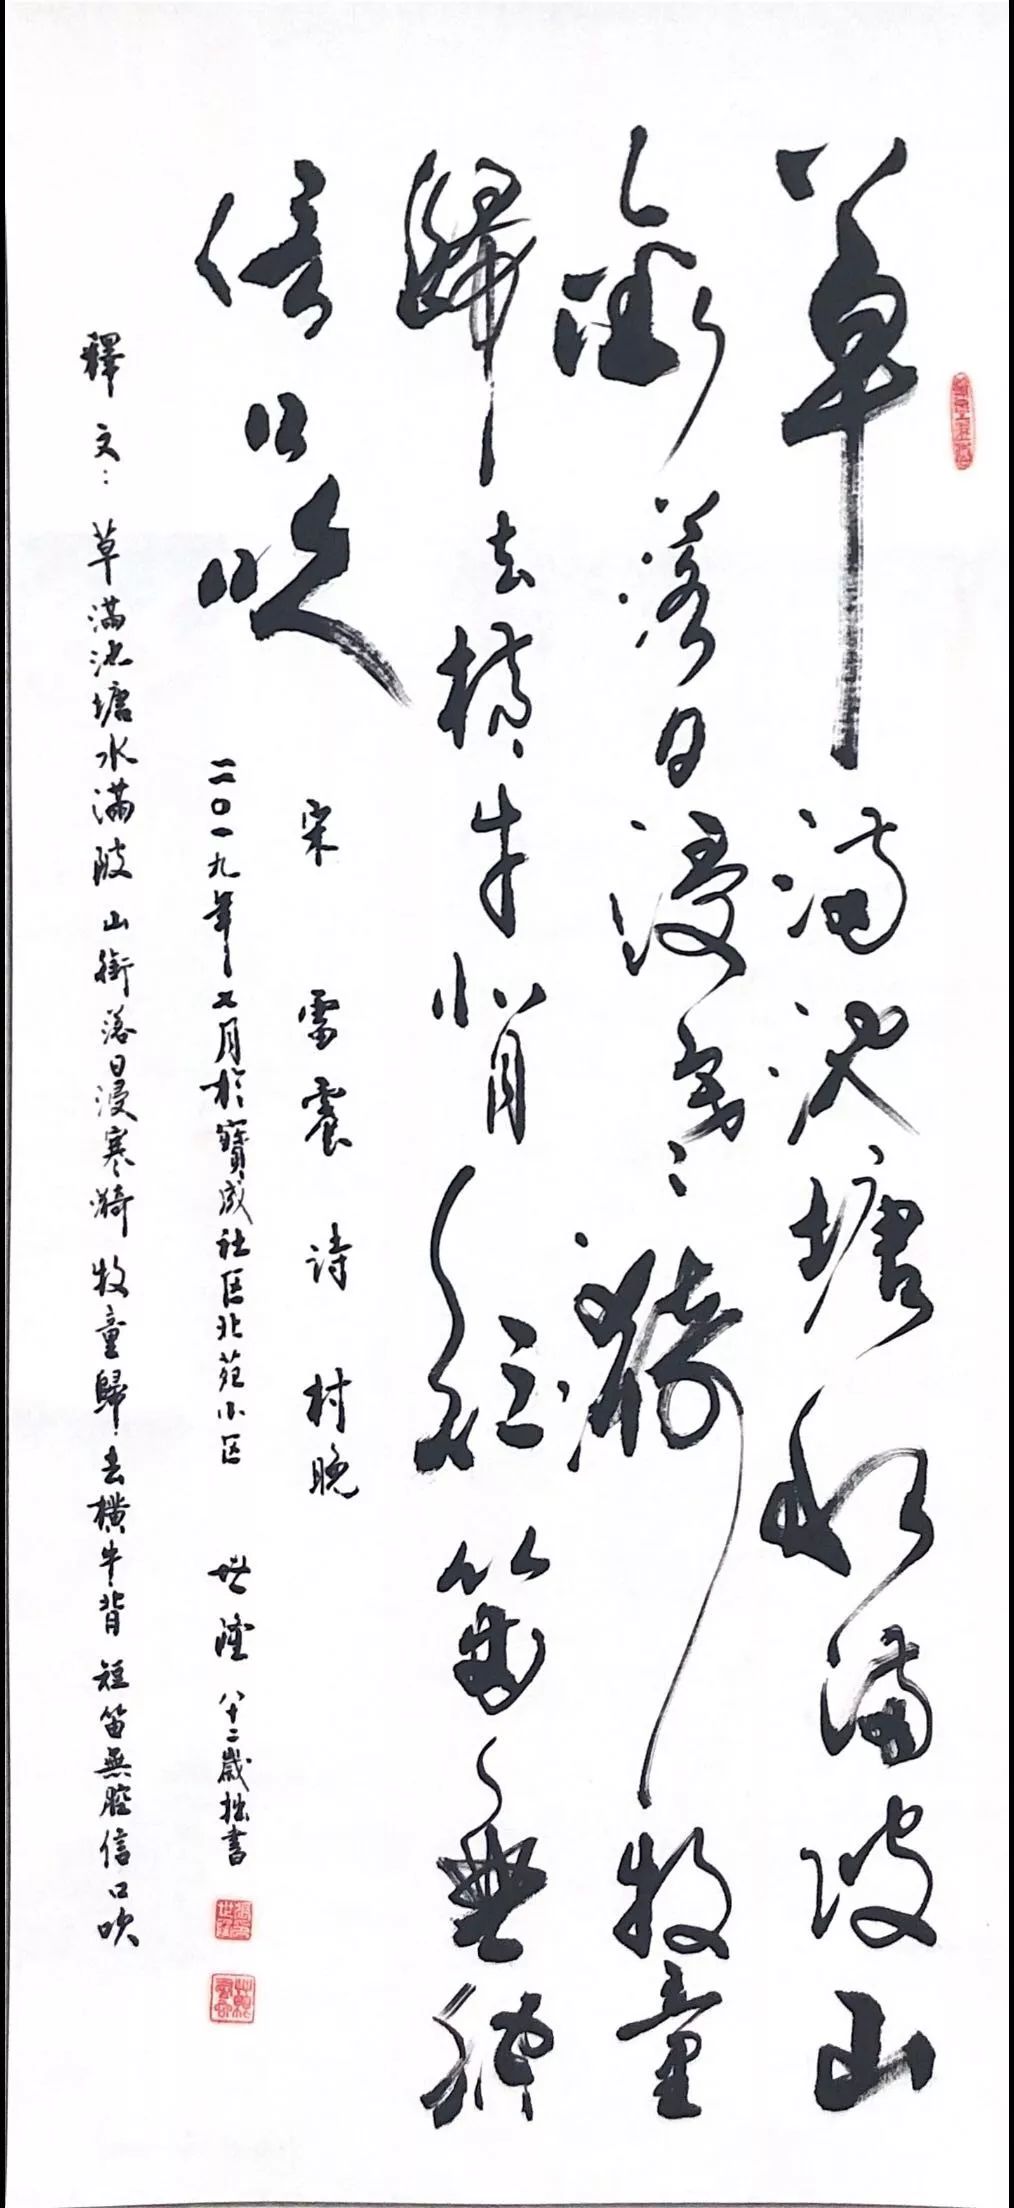 草滿池塘水滿陂山
銜落日浸寒漪牧童
歸去横牛背短笛無腔
信口吹
宋 雷震 詩 村晚
二〇一九年七月於寶成社区北苑小区 世隆 八十二歲拙書
釋文：草滿池塘水滿陂 山銜落日浸寒漪 牧童歸去横牛背 短笛無腔信口吹